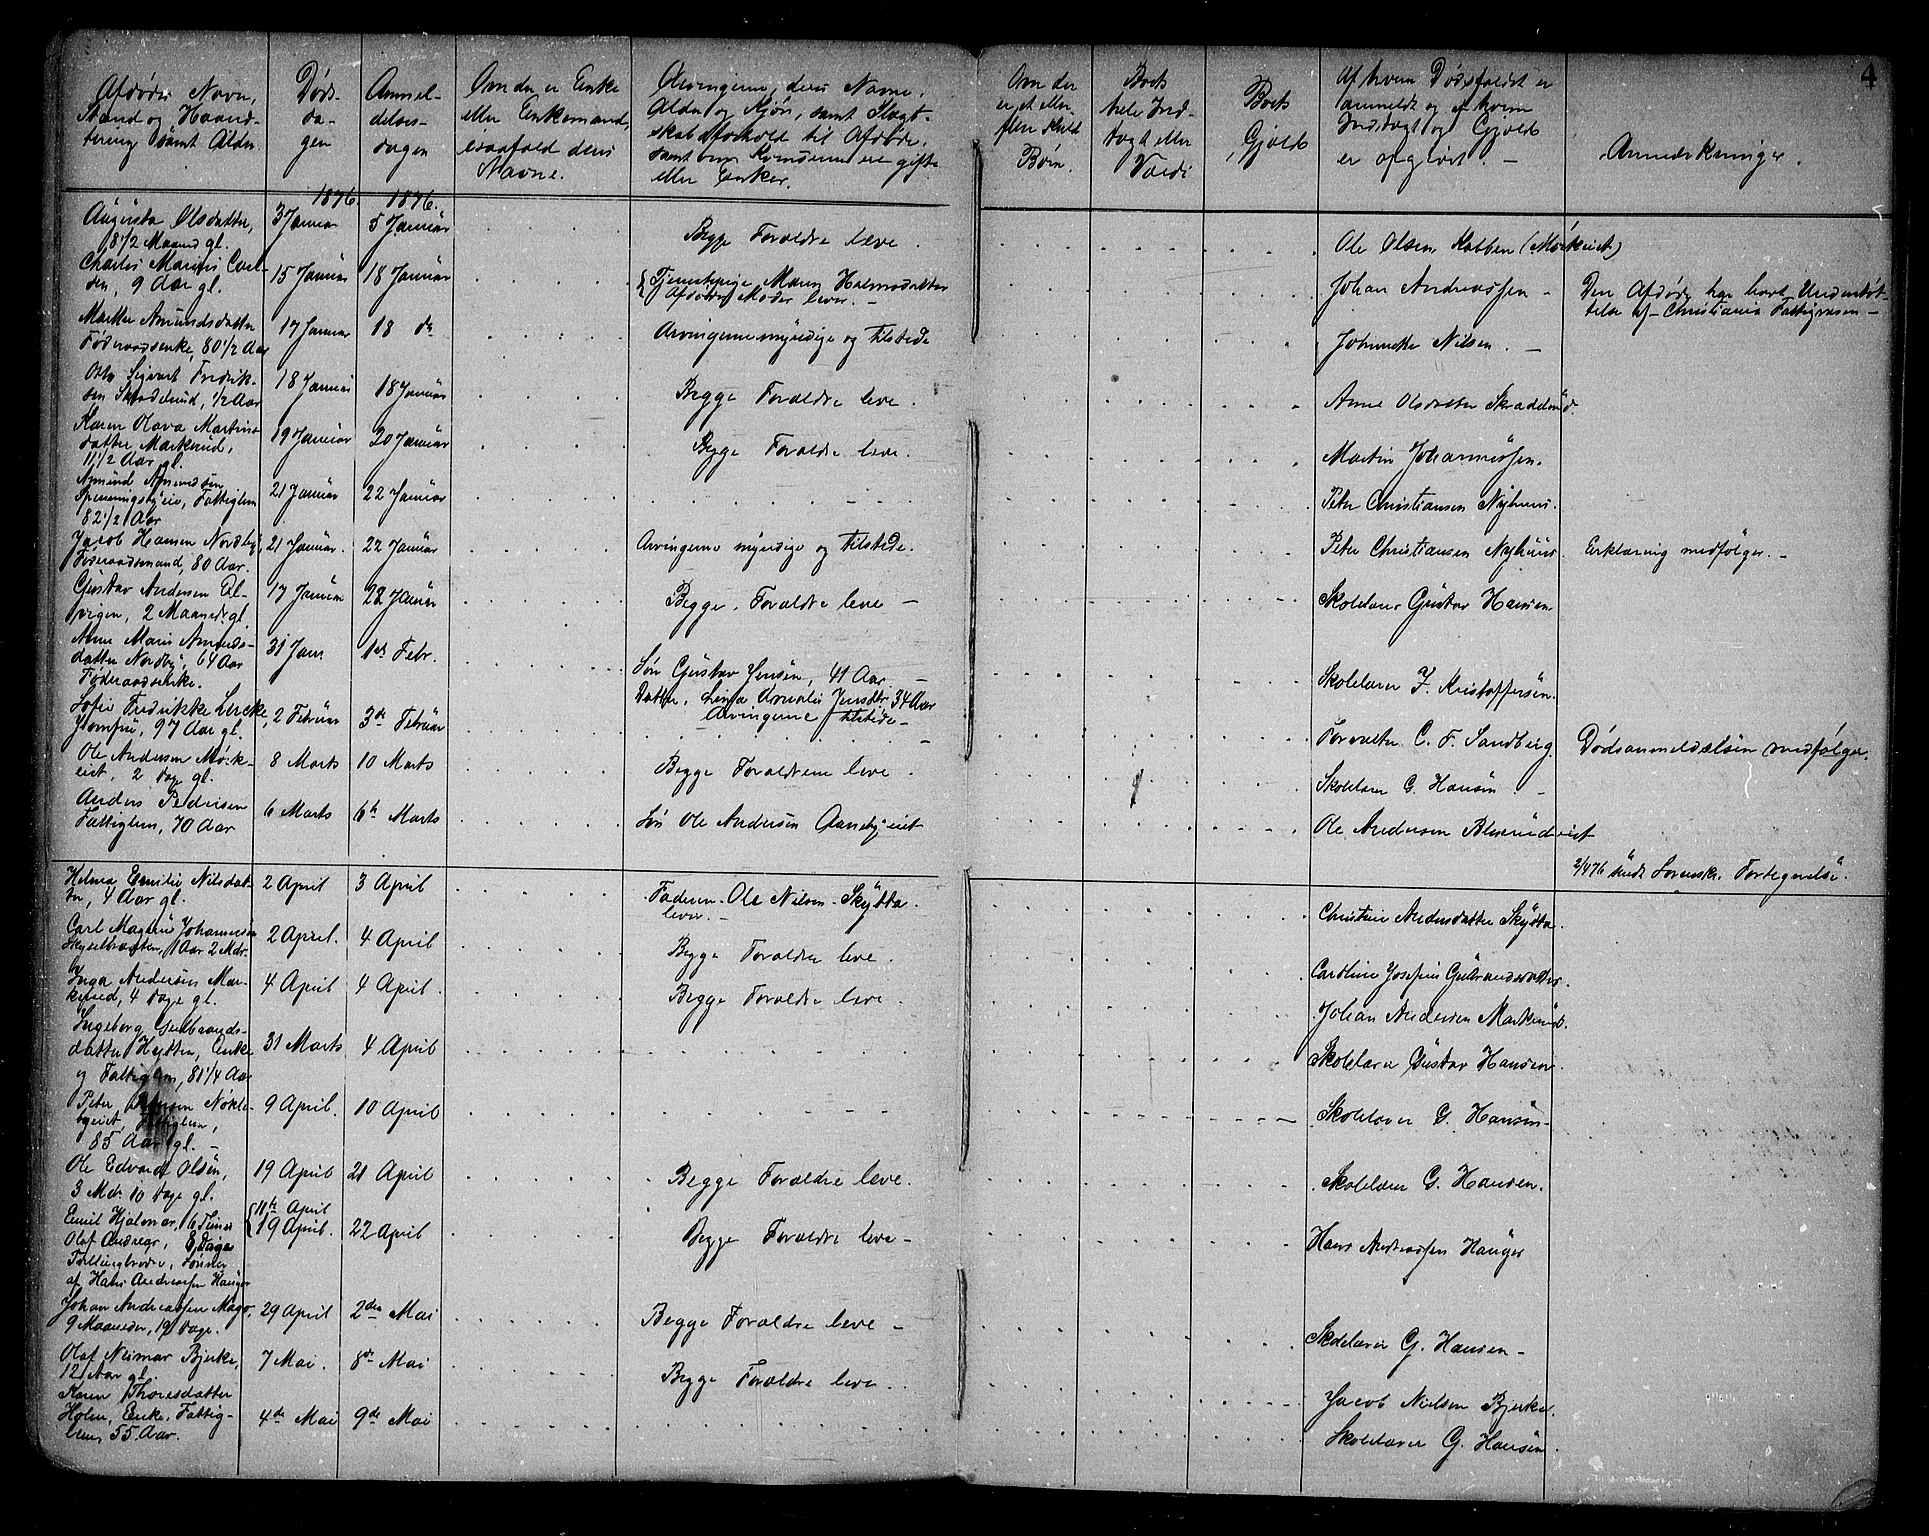 4
Afdødes Navn,
Stand og Haand-
tering samt Alder.
Døds-
da-
gen
Anmel-
delses-
dagen
Om der er Enke
eller Enkemand,
isaafald dens
Navne.
Arvingerne, deres Navne,
Alder og Kjøn, samt Slægt-
skabsforhold til Afdøde,
samt om Kvinderne ere gifte
eller Enker.
Om der
er et eller
flere Kuld
Børn.
Boets
hele Ind-
tægt eller
Værdi
Boets
Gjæld
Af hvem Dødsfaldet er
anmeldt og af hvem
Indtægt og Gjæld
er opgivet. –
Anmærkninger.
1876. 1876.
Augusta Olsdatter, 3 Januar 5 Januar Begge Forældre leve. Ole Olsen Kobben (Mørkeiet)
8 1/2 Maaned gl.
Charles Marius Carl- 15 Januar 18 Januar Tjenestepige Maren Halvorsdatter Johan Andreassen – Den Afdøde har havt Understøt-
sen, 9 Aar gl. Afdødes Moder lever. – telse af Christiania Fattigvæsen –
Marthe Amundsdatter 17 Januar 18 do Arvingerne myndige og tilstede Johannes Nilsen. –
Føderaadsenke, 80 1/2 Aar
Sigvart Fredrik- 18 Januar 18 Januar Begge Forældre leve. Anne Olsdatter Skradderud.
sen 1/2 Aar
Karen Olava Martins- 19 Januar 20 Januar Begge Forældre leve. Martin Johannessen.
datter Markerud,
11 1/2 Aar gl.
Amund Amundsen 21 Januar 22 Januar Peter Christiansen Nyhuus.
Fattiglem
82 1/2 Aar
Jacob Hansen Nordby, 21 Januar. 22 Januar Arvingerne myndige og tilstede. Peter Christiansen Nyhuus Erklæring medfølger. –
Føderaadsmand, 80 Aar.
Gustav Andersen El- 17 Januar 28 Januar Begge Forældre leve – Skolelærer Gustav Hansen
vigen, 2 Maaned gl.
Anne Marie Amunds- 31 Janr 1ste Febr. Søn Gustav Jensen, 41 Aar – Skolelærer F. Kristoffersen.
datter Nordby, 64 Aar Datter, Amalie Jensdtr, 34 Aar
Føderaadsenke. Arvingerne tilstede –
Sofie Fredrikke Lercke, 2 Februar 3de Februar Forvalter C. F. Sandberg. Dødsanmeldelsen medfølger.
Jomfru, 97 Aar gl.
Ole Andersen Mørk- 8 Marts 10 Marts Begge Forældrene leve. Skolelærer G. Hansen. –
eiet, 2 Dage gl.
Anders Pedersen 6 Marts 6te Marts Søn Ole Andersen Aansbyeiet Ole Andersen
Fattiglem, 70 Aar
2/4 76 sendt Sorenskr. Fortegnelse.
Helma Emilie Nilsdat- 2 April 3 April Faderen Ole Nilsen Skytta Christine Andersdatter Skytta.
ter, 4 Aar gl. lever. –
Carl Magnus Johannesen 2 April. 4 April Begge Forældre leve. Caroline Josefine Gulbrandsdatter.
1 Aar 2 Mdr.
Inga Andersen Mar- 4 April 4 April. Begge Forældre leve. Johan Andersen Markerud.
kerud, 4 Dage gl.
Ingeborg Gulbrands- 31 Marts 4 April Skolelærer Gustav Hansen.
datter Hytten, Enke
og Fattiglem, 81 1/4 Aar
Peter Nøkle- 9 April. 10 April Skolelærer G. Hansen –
byeiet, Fattiglem,
85 Aar gl. –
Ole Edvard Olsen, 19 April 20 April Begge Forældre leve. Skolelærer G. Hansen.
3 Mdr. 10 Dage gl.
Emil Hjalmar, 16 Timer 11te April
Olaf Andreas, 8 Dage 19 April. 22 April Begge Forældre leve – Hans Andreassen Hauger
Tvillingbrødre, Sønner
af Hans Andreassen Hauger
Johan Andreassen Mago, 29 April 2den Mai Begge Forældre leve – Skolelærer G. Hansen –
9 Maaneder, 19 Dage.
Olaf Neimar Bjerke, 7 Mai. 8de Mai Begge Forældre leve. Jacob Nielsen Bjerke.
12 Aar gl.
Karen Thoresdatter 4de Mai 9de Mai Skolelærer G. Hansen.
Holm, Enke, Fattig-
lem, 55 Aar.